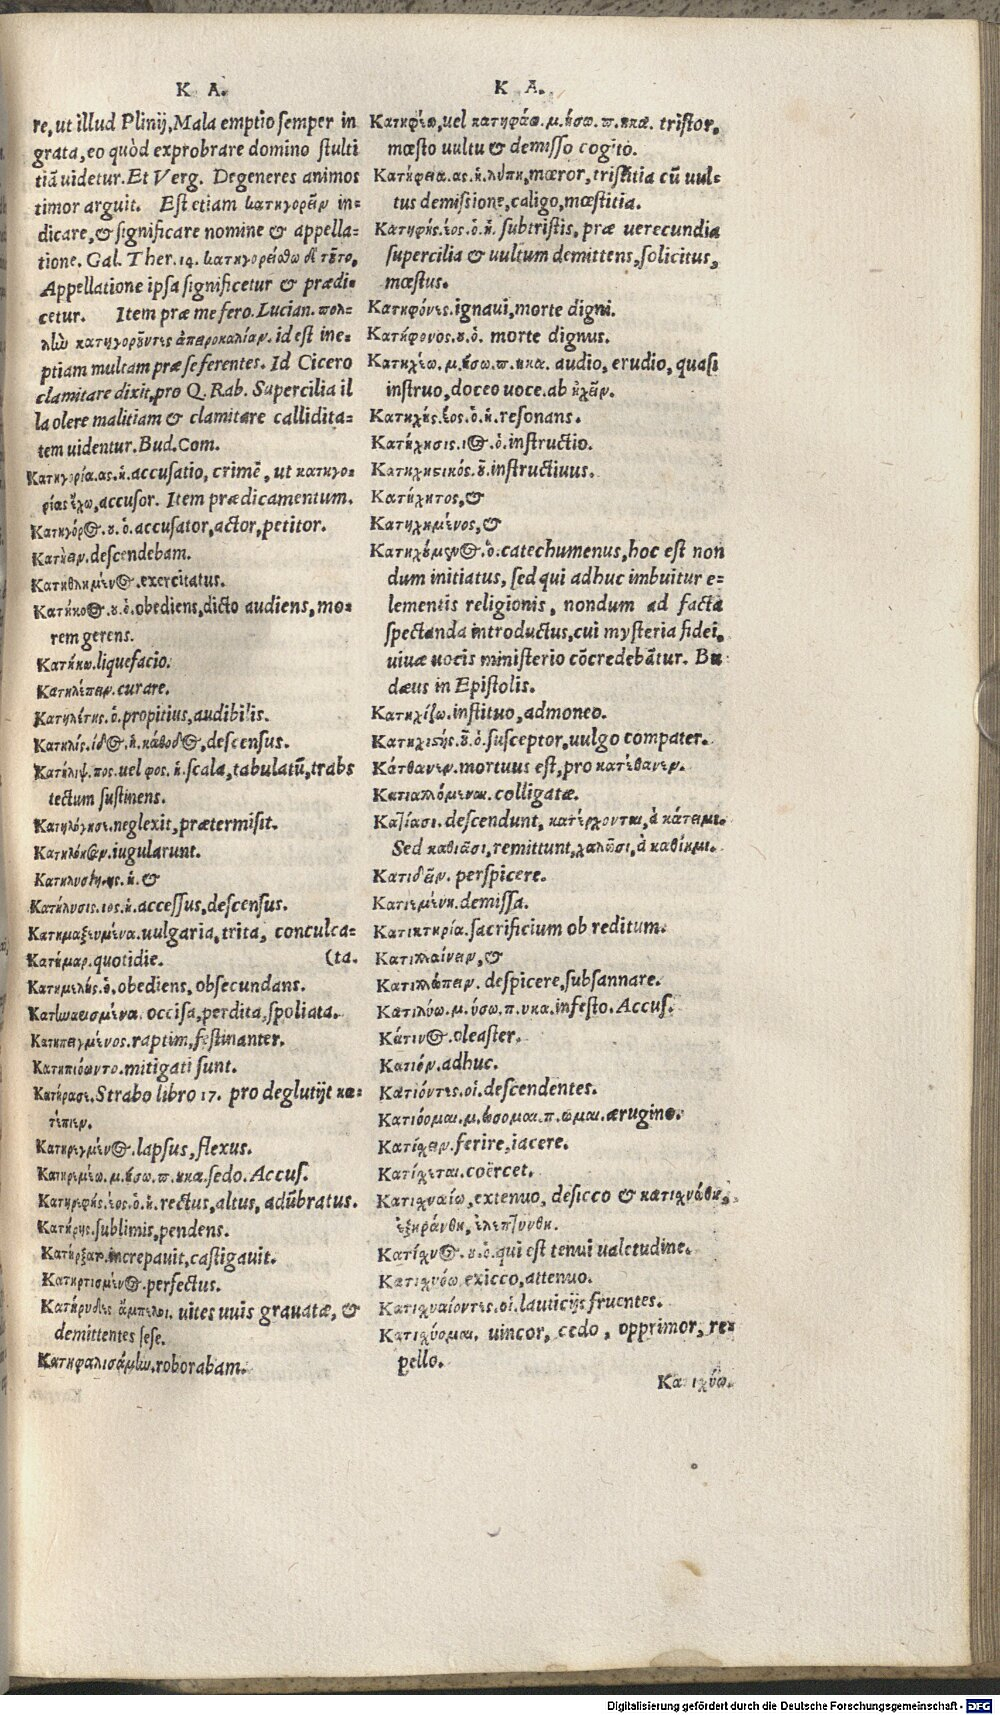 K A.
re, ut illud Plinij, Mala emptio semper in
grata, eo quòd exprobrare domino stulti
tiã uidetur. Et Verg. Degeneres animos
timor arguit. Est etiam κατηγορεῖν in=
dicare, & significare nomine & appella=
tione. Gal. Ther. 14. κατηγορείσθω δὲ τοῦτο,
Appellatione ipsa significetur & prædi=
cetur. Item præ me fero. Lucian. πολ=
λὴν κατηγοροῦντες ἀπειροκαλίαν. id est ine=
ptiam multam præ se ferentes. Id Cicero
clamitare dixit, pro Q. Rab. Supercilia il
la olere malitiam & clamitare callidita=
tem uidentur. Bud. Com.
Κατηγορία. ας. ἡ. accusatio, crimẽ, ut κατηγο=
ρίας ἔχω, accusor. Item prædicamentum.
Κατήγορος. ου. ὁ. accusator, actor, petitor.
Κατῄειν. descendebam.
Κατηθλημένος. exercitatus.
Κατήκοος. ου. ὁ. obediens, dicto audiens, mo=
rem gerens.
Κατήκω. liquefacio.
Κατηλέπειν. curare.
Κατηλίτης. ὁ. propitius, audibilis.
Κατηλὶς. ίδος. ἡ. κάθοδος, descensus.
Κατῆλιψ. πος. uel φος. ἡ. scala, tabulatũ, trabs
tectum sustinens.
Κατηλόγησε. neglexit, prætermisit.
iugularunt.
Κατηλυσίη. ης. ἡ. &
Κατήλυσις. ιος. ἡ. accessus, descensus.
Κατημαξευμένα. uulgaria, trita, conculca=
Κατῆμαρ. quotidie. (ta.
Κατημελὴς. ὁ. obediens, obsecundans.
occisa, perdita, spoliata.
Κατηπειγμένος. raptim, festinanter.
Κατηπιόωντο. mitigati sunt.
Κατήρασε. Strabo libro 17. pro deglutijt κα=
τέπιεν.
Κατηρειγμένος. lapsus, flexus.
Κατηρεμέω. μ. ήσω. π. ηκα. sedo. Accus.
Κατηρεφὴς. έος. ὁ. ἡ. rectus, altus, adũbratus.
Κατήρης. sublimis, pendens.
Κατήρξατο. increpauit, castigauit.
Κατηρτισμένος. perfectus.
ἄμπελοι. uites uuis grauatæ, &
demittentes sese.
Κατησφαλισάμην. roborabam.
K A.
Κατηφέω, uel κατηφάω. μ. ήσω. π. ηκα. tristor,
mœsto uultu & demisso cogito.
Κατήφεια. ας. ἡ. λύπη, mœror, tristitia cũ uul=
tus demissione, caligo, mœstitia.
Κατηφὴς. έος. ὁ. ἡ. subtristis, præ uerecundia
supercilia & uultum demittens, solicitus,
mœstus.
Κατηφόνες. ignaui, morte digni.
Κατήφονος. ου. ὁ. morte dignus.
Κατηχέω. μ. ήσω. π. ηκα. audio, erudio, quasi
instruo, doceo uoce. ab ἠχεῖν.
Κατηχὴς. έος. ὁ. ἡ. resonans.
Κατήχησις. ιος. ὁ. instructio.
Κατηχητικός. οῦ. instructiuus.
Κατήχητος, &
Κατηχημένος, &
Κατηχούμενος. ὁ. catechumenus, hoc est non
dum initiatus, sed qui adhuc imbuitur e=
lementis religionis, nondum ad facta
spectanda introductus, cui mysteria fidei,
uiuæ uocis ministerio cõcredebãtur. Bu
dæus in Epistolis.
Κατηχίζω. instituo, admoneo.
Κατηχιστὴς. οῦ. ὁ. susceptor, uulgo compater.
Κάτθανεν. mortuus est, pro κατέθανεν.
Κατιαλλόμεναι. colligatæ.
Κατίασι. descendunt, κατέρχονται, à κάτειμι.
Sed καθιᾶσι, remittunt, χαλῶσι, à καθίημι.
Κατιδεῖν. perspicere.
Κατιεμένη. demissa.
Κατικτηρία. sacrificium ob reditum.
Κατιλλαίνειν, &
Κατιλλώπειν. despicere, subsannare.
Κατιλύω. μ. ύσω. π. υκα. infesto. Accus.
Κάτινος. oleaster.
Κατιόν. adhuc.
Κατιόντες. οἱ. descendentes.
Κατιόομαι. μ. ώσομαι. π. ωμαι. ærugino.
Κατίσχειν. ferire, iacere.
Κατίσχεται. coërcet.
Κατισχναίω, extenuo, desicco & κατισχνάθη,
ἐξηράνθη, ἐλεπτύνθη.
Κάτισχνος. ου. ὁ. qui est tenui ualetudine.
Κατισχνόω. exicco, attenuo.
Κατισχναίοντες. οἱ. lauticijs fruentes.
Κατισχύομαι. uincor, cedo, opprimor, re=
pello.
Κατισχύω.
Digitalisierung gefördert durch die Deutsche Forschungsgemeinschaft - DFG